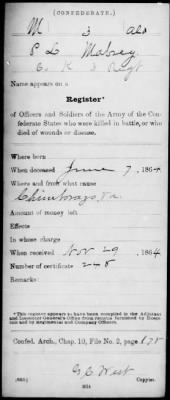 (CONFEDERATE.)
M 3 Ala
P L Mabrey
Co. K 3 Regt
Name appears on a
Register*
of Officers and Soldiers of the Army of the Con-
federate States who were killed in battle, or who
died of wounds or disease.
Where born
When deceased June 7, 1864
Where and from what cause
Chimborazo, Va.
Amount of money left
Effects
In whose charge
When received Nov 29, 1864
Number of certificate 248
Remarks:
*This register appears to have been compiled in the Adjutant
and Inspector General's Office from returns furnished by Hospi-
tals and by Regimental and Company Officers.
Confed. Arch., Chap. 10, File No. 2, page
G. C. West
Copyist.